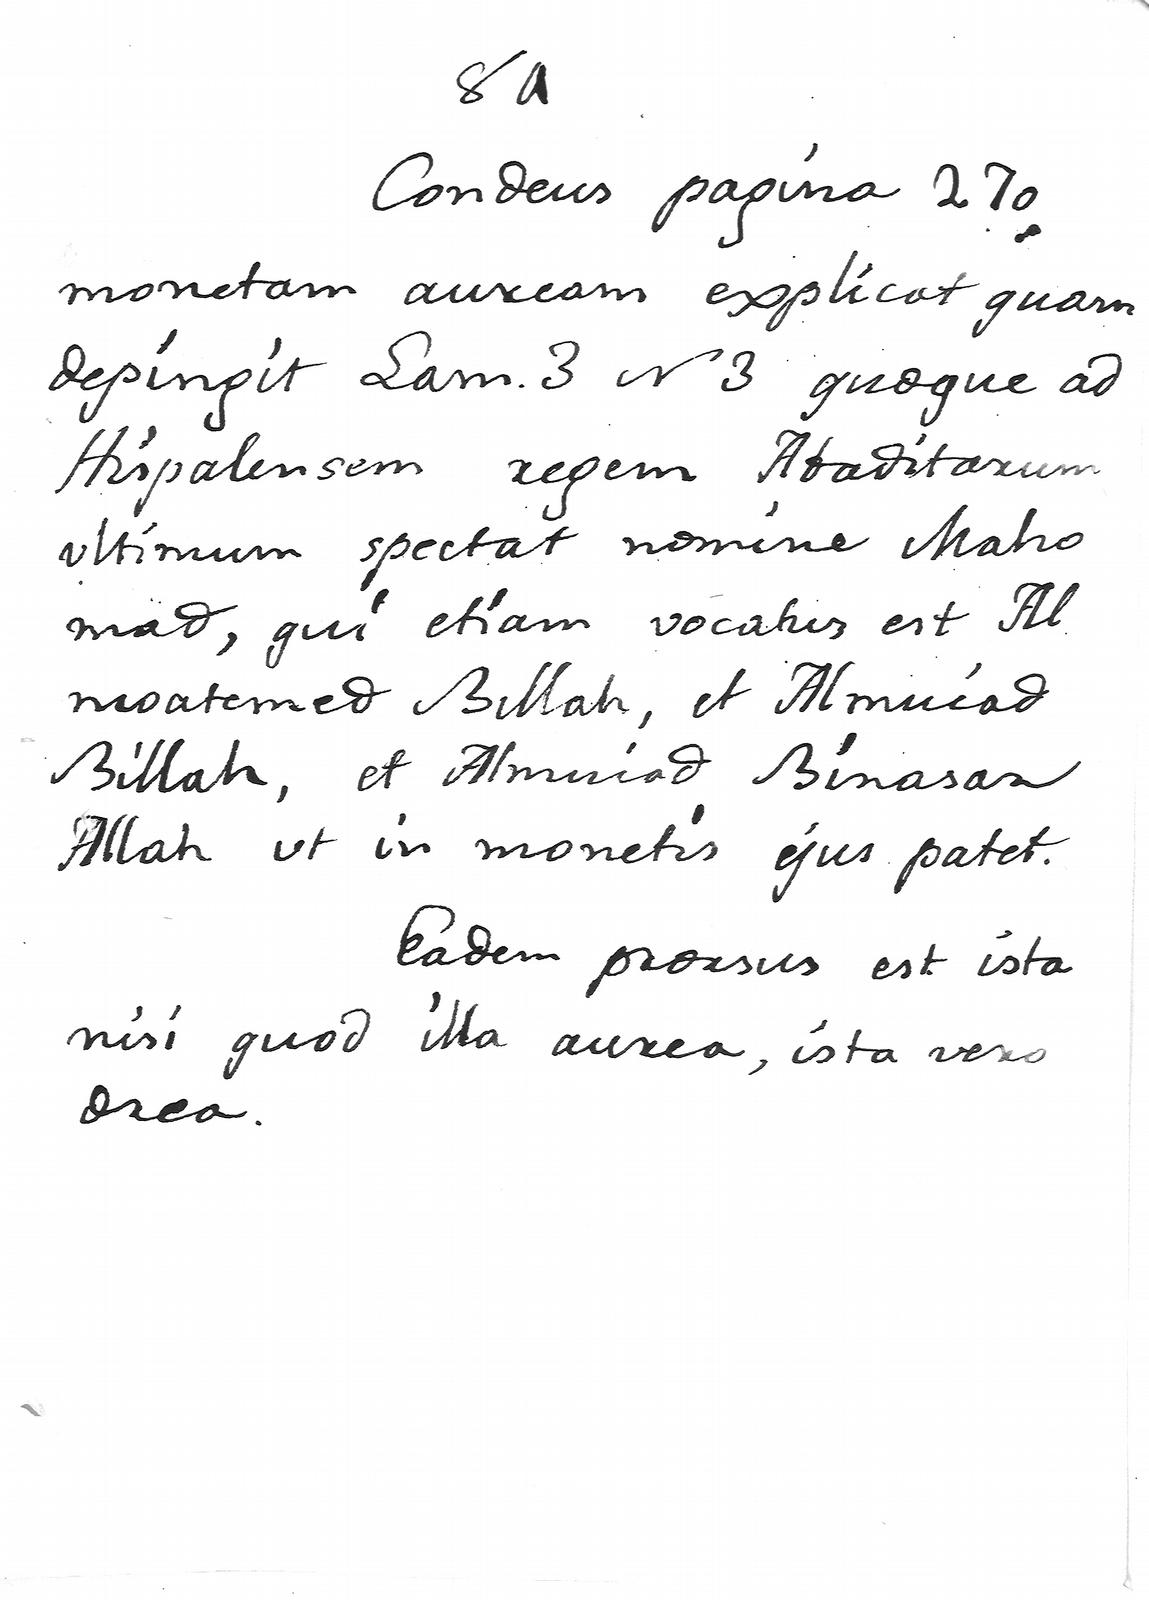 8 A
Condeus pagina 270
monetam auream explicat quam
depingit Lam. 3 N 3 quæque ad
Hispalensem regem Abaditarum
vltimum spectat nomine Maho
mad, qui etiam vocatus est Al
moatemed Billah, et Almuiad
Billah, et Almuiad Binasar
Allah vt in monetis ejus patet.
Eadem prorsus est ista
nisi quod illa aurea, ista vero
ærea.